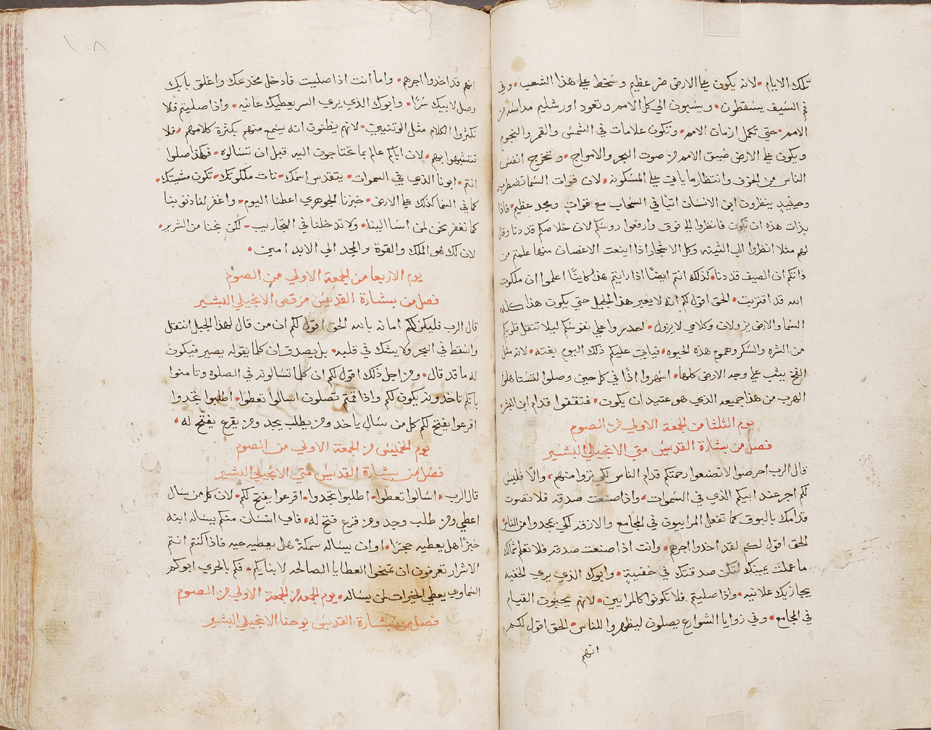 تلك الايام • لانه يكون علي الارض ضر عظيم وسخط علي هذا الشعب • وفي
فم السيف يسقطون • ويسبون الي كل الامم وتعود اورشليم مداسه من
الامم • حتي تكمل ازمان الامم • وتكون علامات في الشمس والقمر والنجوم
ويكون علي الارض ضيق الامم من صوت البحر والامواج • وتخرج انفس
الناس من الخوف وانتظار ما ياتي علي المسكونه • لان قوات السما تضطرب
وحينيذ ينظرون ابن الانسان اتيًا في السحاب مع قوات ومجد عظيم • فاذا
بدات هذه ان تكون فانظروا الي فوق وارفعوا روسكم لان خلاصكم قد دنا وقال
لهم مثلا انظروا الي التينه وكل الاشجار اذا اينعت الاغصان منها علمتم من
ذاتكم ان الصيف قد دنا • كذلك انتم ايضًا اذا رايتم هذا كاينًا اعلموا ان ملكوت
الله قد اقتربت • الحق اقول لكم انه لا يعبر هذا الجيل حتي يكون هذا كله
السما والارض يزولان وكلامي لا يزول • احدروا علي نفوسكم ليلا تثقل قلوبكم
من الشره والسكر وهموم هذه الحيوه • فياتي عليكم ذلك اليوم بغته • لانه مثل
الفخ يثب علي وجه الارض كلها • اسهروا اذًا في كل حين وصلوا لتستاهلوا
الهرب من هذا جميعه الذي هو عتيد ان يكون • فتقفوا قدام ابن البشر
يوم الثلثا من الجمعة الاولي من الصوم
فصل من بشارة القديس متي الانجيلي البشير
قال الرب احرصوا لا تصنعوا رحمتكم قدام الناس لكي تراوا منهم • والا فليس
لكم اجر عند ابيكم الذي في السموات • واذا صنعت صدقه فلا تصوت
قدامك بالبوق كما تفعل المراييون في المجامع والازقه لكي يمجدوا من الناس
الحق اقول لكم لقد اخدوا اجرهم • وانت اذا صنعت صدقه فلا تعلم شمالك
ما عملت يمينك لتكن صدقتك في خفيه • وابوك الذي يري الخفيه
يجازيك علانيه • واذا صليتم فلا تكونوا كالمراييين • لانهم يحبون القيام
في المجامع • وفي زوايا الشوارع يصلون ليظهروا للناس • الحق اقول لكم
انهم
انهم قد اخدوا اجرهم • واما انت اذا صليت فادخل مخدعك واغلق بابك
وصل لابيك سرًا • وابوك الذي يري السر يعطيك علانيه • واذا صليتم فلا
تكثروا الكلام مثل الوتنيين • لانهم يظنون انه يسمع منهم بكثرة كلامهم • فلا
تتشبهوا بهم • لان اباكم عالم بما تحتاجون اليه قبل ان تسالوه • فهكذا صلوا
انتم • ابونا الذي في السموات • يتقدس اسمك • تات ملكوتك • تكون مشيتك •
كما في السما كذلك علي الارض • خبزنا الجوهري اعطنا اليوم • واغفر لنا ذنوبنا
كما نغفر نحن لمن اسا الينا • ولا تدخلنا في التجاريب • لكن نجنا من الشرير •
لان لك هو الملك والقوة والمجد الي الابد امين •
يوم الاربعا من الجمعة الاولي من الصوم
فصل من بشارة القديس مرقص الانجيلي البشير
قال الرب فليكن لكم امانه بالله الحق اقول لكم ان من قال لهذا الجبل انتقل
واسقط في البحر ولا يشك في قلبه • بل يصدق ان كلما يقوله يصير فيكون
له ما قد قال • ومن اجل ذلك اقول لكم ان كلما تسالونه في الصلوة وتامنوا
بانكم تاخدونه يكون لكم واذا قمتم تصلون اسالوا تعطوا • اطلبوا تجدوا
اقرعوا يفتح لكم كل من سال ياخد ومن يطلب يجد ومن يقرع يفتح له •
يوم الخميس من الجمعة الاولي من الصوم
فصل من بشارة القديس متي الانجيلي البشير
قال الرب • اسالوا تعطوا • اطلبوا تجدوا • اقرعوا يفتح لكم • لان كل من سال
اعطي ومن طلب وجد ومن قرع فتح له • فاي انسان منكم يساله ابنه
خبزًا هل يعطيه حجرًا • او ان يساله سمكة هل يعطيه حيه فاذا كنتم انتم
الاشرار تعرفون ان تمنحوا العطايا الصالحه لابنايكم • فكم بالحري ابوكم
السماوي يعطي الخيرات لمن يساله • يوم الجمعة من الجمعة الاولي من الصوم
فصل من بشارة القديس يوحنا الانجيلي البشير